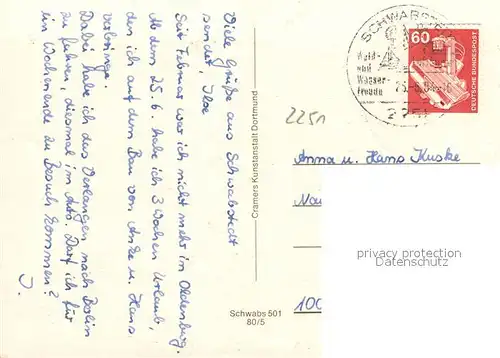 Viele Grüße aus Schwabstedt
sendet, Ilse
Seit Februar war ich nicht mehr in Oldenburg.
Ab dem 25.6. habe ich 3 Wochen Urlaub,
den ich auf dem Bau von Anke u. Hans
verbringe.
Dabei habe ich das Verlangen nach Berlin
zu fahren, diesmal im Auto. Darf ich für
ein Wochenende zu Besuch kommen?
I.
Cramers Kunstanstalt Dortmund
Schwabs 501
80/5
SCHWABSTE
Wald-
und
Wasser-
Freude
2251
60
DEUTSCHE BUNDESPOST
2251
Anna u. Hans Kuske
100
privacy protection
www.AnsichtskartenCenter.de